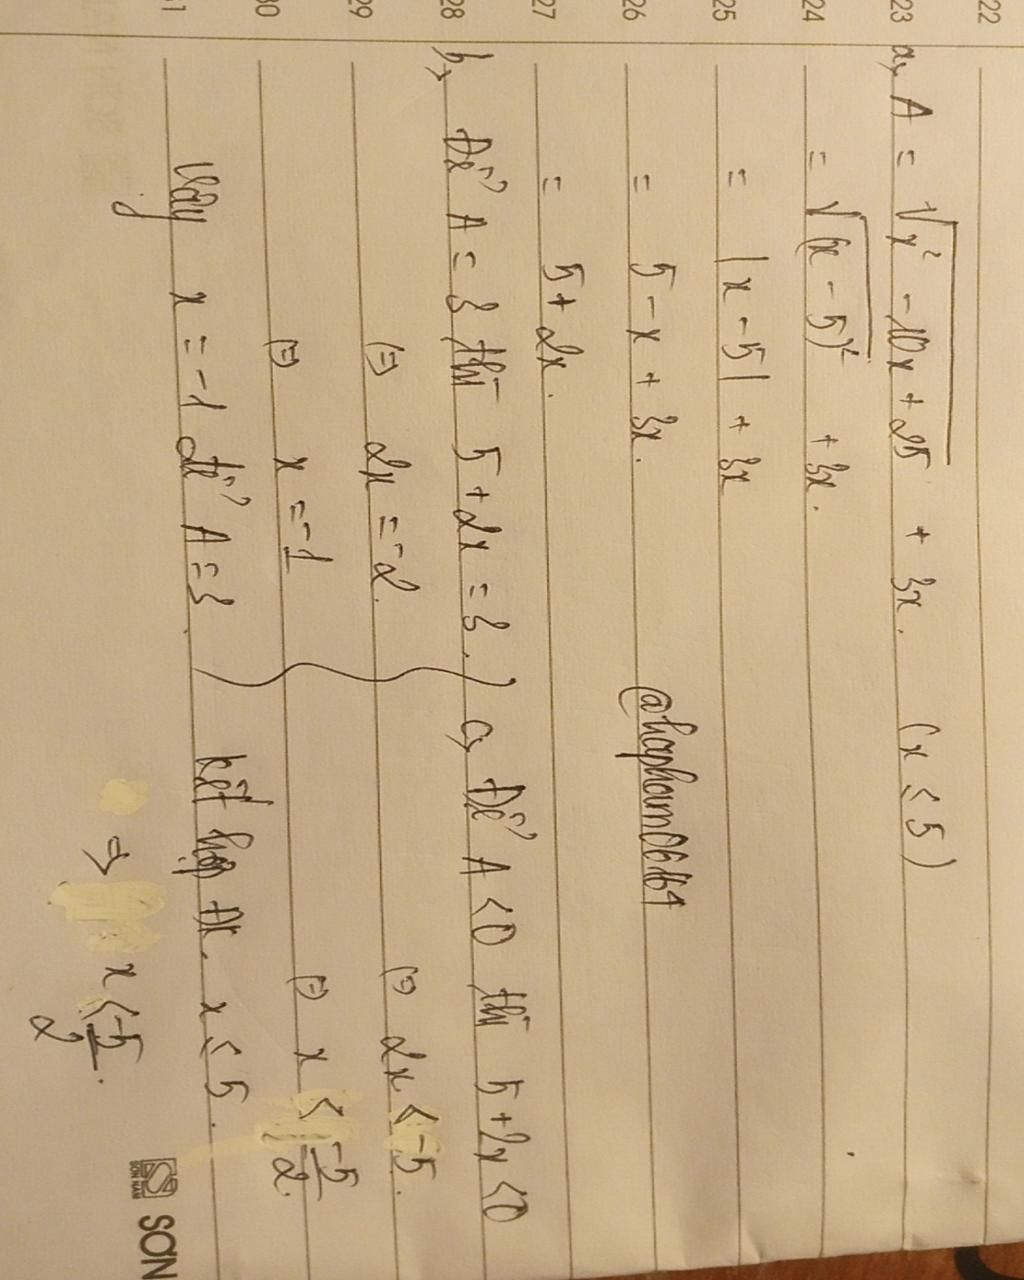 22
23 a, A = √x² - 10x + 25 + 3x. (x ≤ 5)
24 = √(x - 5)² + 3x.
25 = |x - 5| + 3x
26 = 5 - x + 3x. @hapham06164
27 = 5 + 2x.
28 b, Để A = 3 thì 5 + 2x = 3. c, Để A < 0 thì 5 + 2x < 0
29 (=) 2x = -2. (=) 2x < -5.
30 (=) x = -1 (=) x < -5/2.
31 Vậy x = -1 để A = 3. kết hợp đk. x ≤ 5.
⇒ x < -5/2.
SON NAM
SƠN